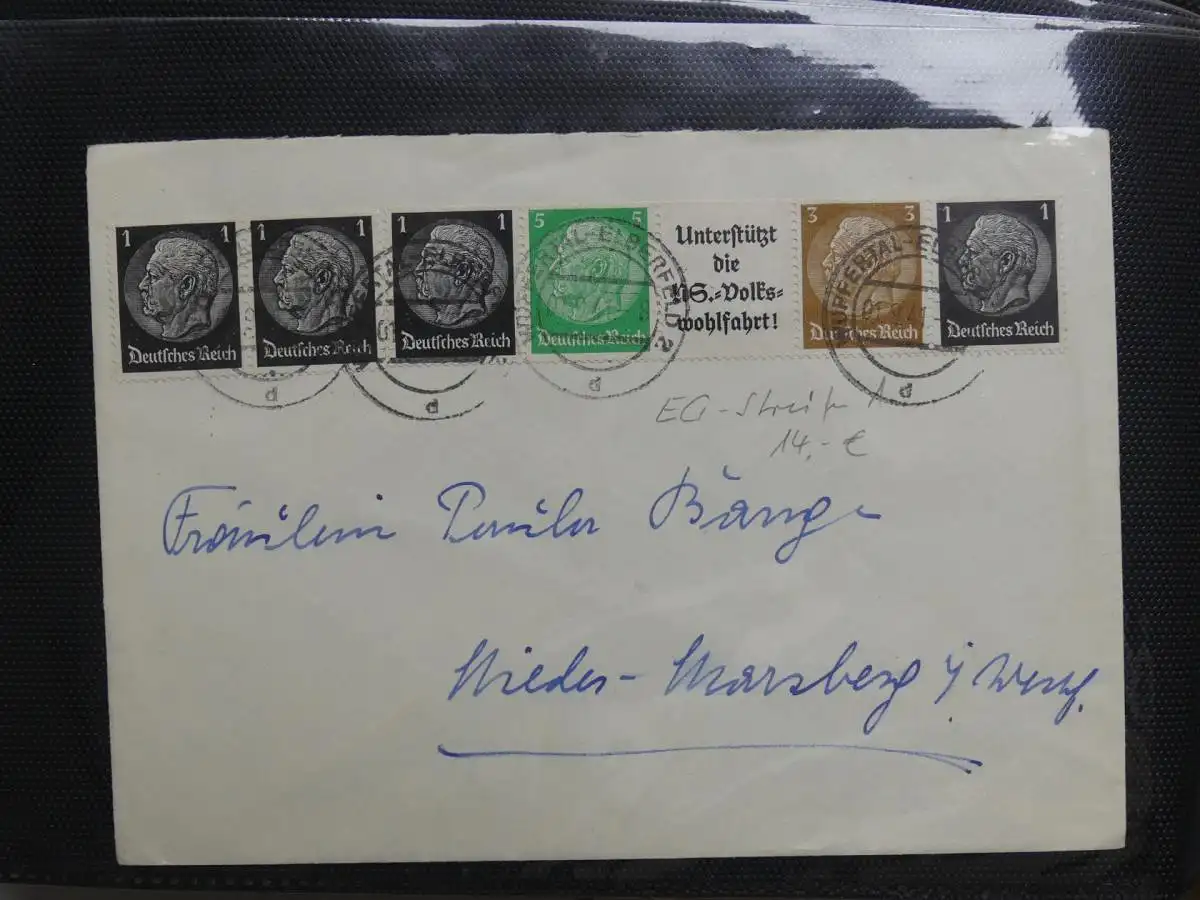 1 1 1 1 1 1 5 5 Unterstützt 3 3 1 1
die
NS.-Volks-
wohlfahrt!
Deutsches Reich Deutsches Reich Deutsches Reich Deutsches Reich Deutsches Reich Deutsches Reich
WUPPERTAL-ELBERFELD 2
d d d d
EG-Streifen
14,- €
Fräulein Paula Bange
Nieder-Marsberg i/ Westf.